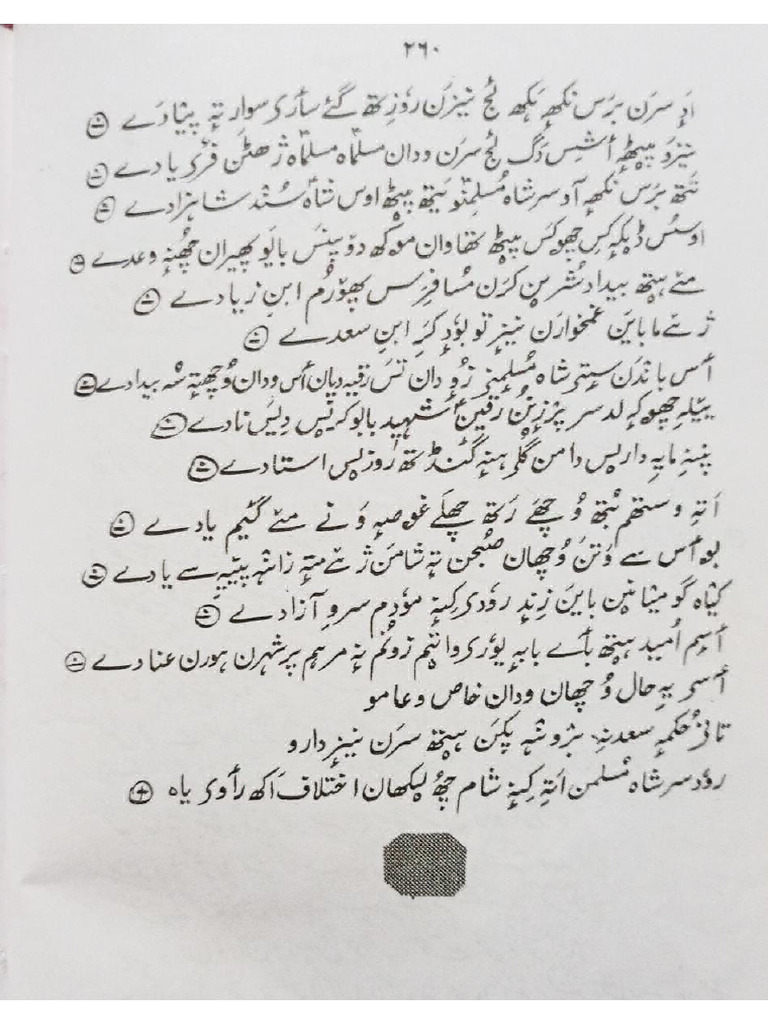 ۲۶۰
اَدِ سرَن برَس نکھہٕ ہَکھہ لٔج نیزن روٗزِتھ گئے سأری سوار تہٕ پیٛادَے
نیزَو پیٹھٕے أشِس دَگ لٔج سرَن ودان مسلماہ مسلماہ ژھٹن فرٛی یادے
نَتھ برَس نکھہٕ آو سر شاہ مُسلِمنٛو یَتھ پیٹھ اوس شاہ سُنٛد شاہزادے
اوسُس ڈیکہٕ کِس چھوکَس پیٹھ تھاوان موکھ دۄپنَس بایو پھیران چھُنہٕ وعدے
مےٚ ہیتھ بیداد شہرس کرَن مُسافرِس پھوٚرُم ابنِ زیادے
ژےٚ ما باین غمخوارن نیزٕ تو بوٗد کٔر ابنِ سعدے
أس باندَن سٟتی شاہ مُسلِمنی زٕ ودان تَس رقیہ دپان أس ودان وُچھتہٕ شہ بیدادے
یتیلہِ چھوکہٕ لد سر پرٛزِنوٚن رقین أشہید بابو کرتَس دِلَس نادے
پننہِ مایہِ دارِس دامن گلہِ ہنہٕ گنٛڈتھ روٗزس استادے
اَتہِ وستھم تُبجھ وُچھے رَتھ چھلَے غوصہٕ وَنے مےٚ گٔیم یادے
بو أس سے وَتَن وُچھان صُبحن تہٕ شامَن ژےٚ متہٕ زانٛہہ پییہِ سے یادے
کیٛاہ گو میٛانین باین زِندٕ روٗدی کِنہٕ موٗدم سروِ آزادے
أسِم اُمید ہیتھ بأے بابہٕ یوٗر کر واتنم زونُم نہٕ مرہم پرشہرن ہورن عنادے
أسی یہِ حال وُچھان ودان خاص و عامو
تأنی حُکمہِ سعدنہِ بروٛنٹھہ پکَن ہیتھ سرن نیزٕ دارو
روٗد سر شاہ مُسلمن اَتہِ کِنہٕ شام چھُ لیکھان اختلاف اَکھ رأوی یاہ